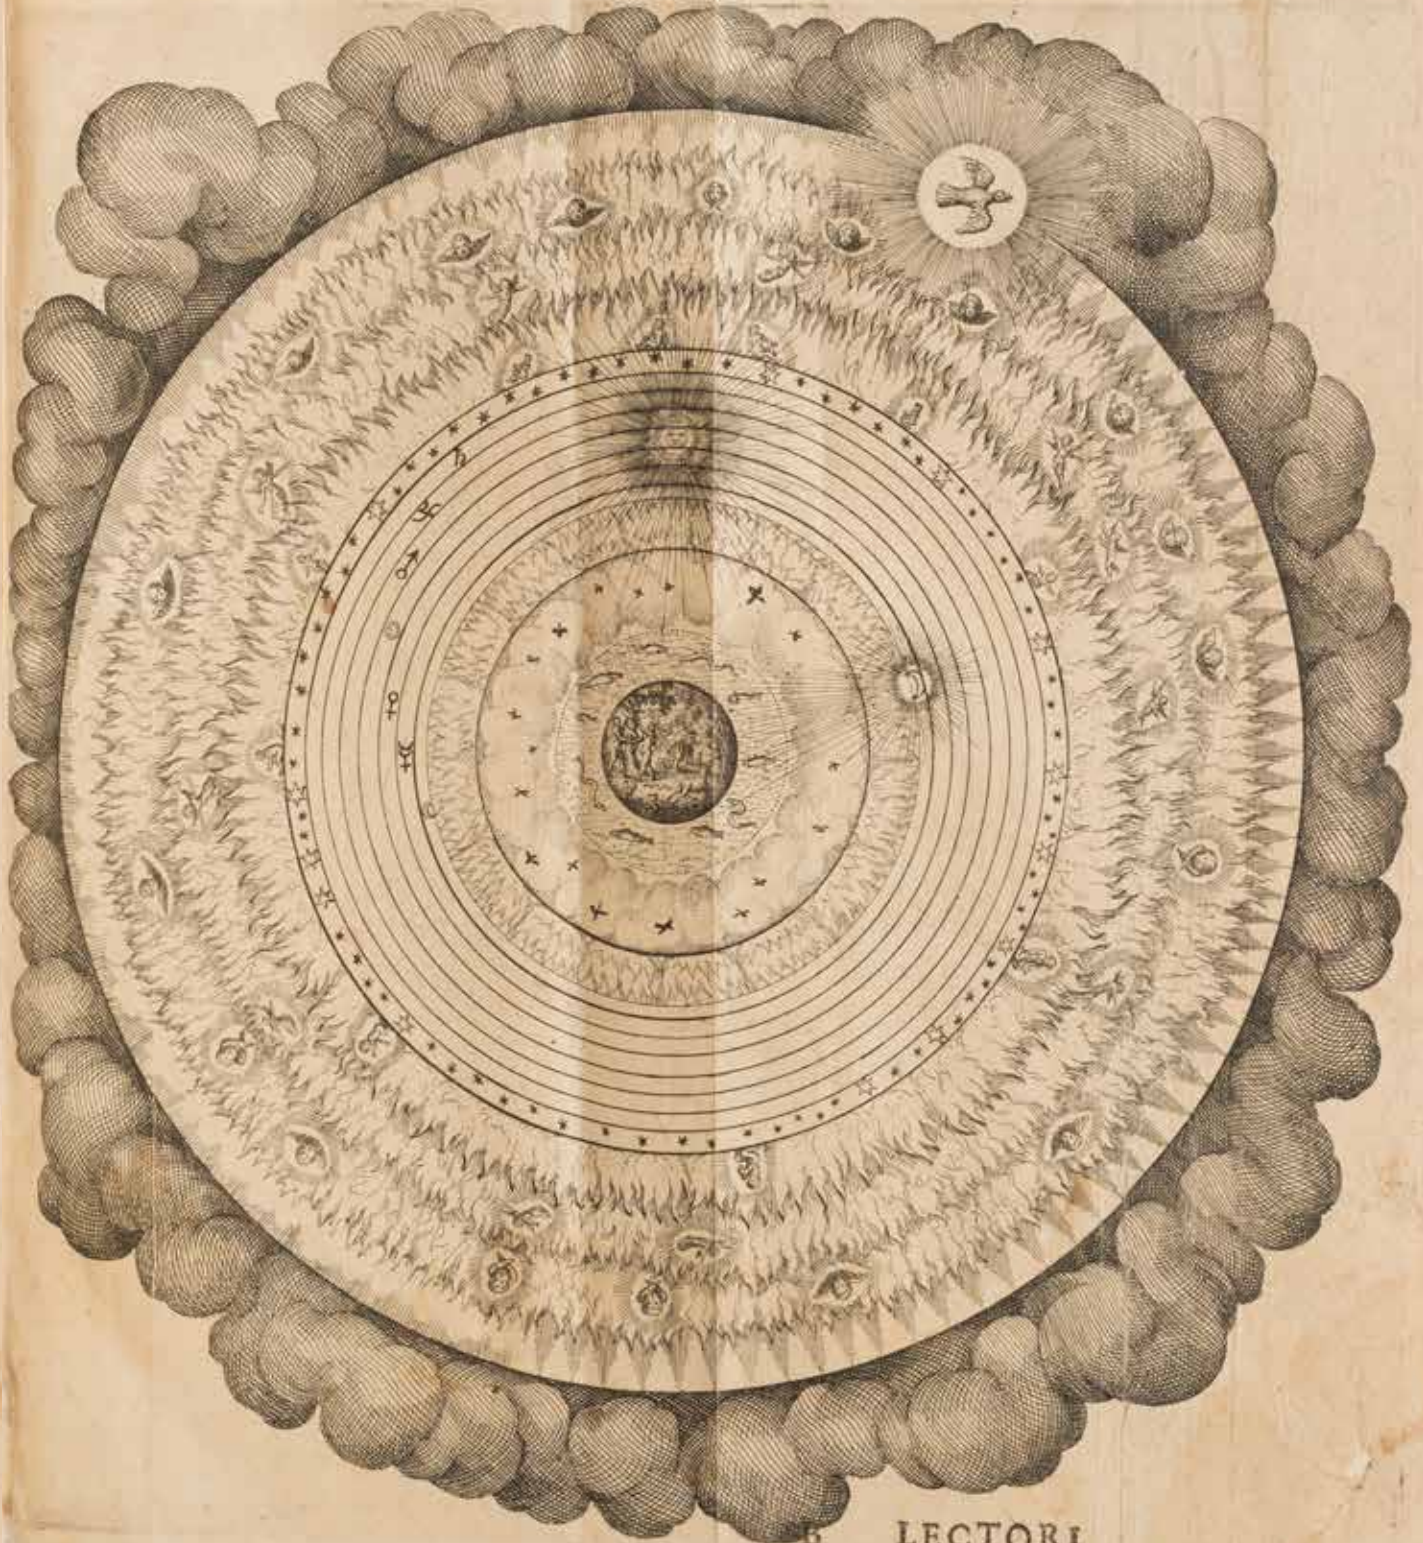 B LECTORI